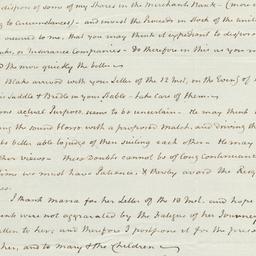 dispose of some of my Shares in the Merchants Bank - (more
to circumstances) - and invest the Proceeds in Stock of the
occured to me, that you may think it expedient to dispose
or Insurance Companies - Do therefore in this as you
the more quickly the better
Blake arrived with your Letter of the 12 Inst. on the Even.g of
Saddle & Bridle in your Stable - take care of them -
actual Purpose seems to be uncertain - He may think
the mind Horse with a proposed Match, and driving the
be better able to judge of their suiting each other - He may
other views - these Doubts cannot be of long Continuance
we must have Patience, & thereby avoid the
I thank maria for her Letter of the 10 Inst. and hope
were not aggravated by the Fatigue of her Journey
to her, and therefore I postpone it for the
her, and to Mary & the Children